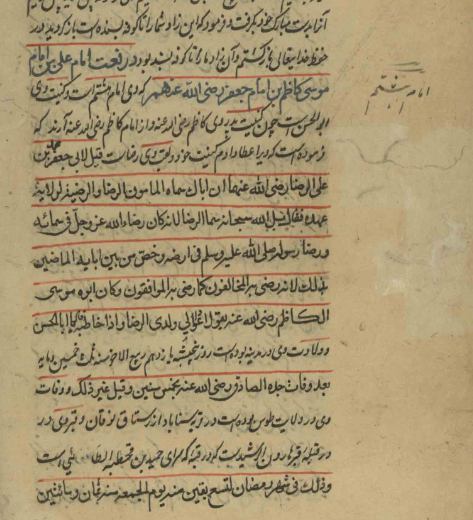 خود گرفت و فرمود که این زاد شما را تا کوفه بسنده است باز گردید در
حفظ خدای تعالی باز گشتم و آن زاد ما را تا کوفه بسنده بود در نعت امام علی بن امام
موسی کاظم بن امام جعفر رضی الله عنهم که وی امام هشتم است و کنیت وی
ابو الحسن است چون کنیت پدر وی کاظم رضی الله عنه و از امام کاظم رضی الله عنه آرند که
فرموده است که ویرا عطا دادم کنیت خود و لقب وی رضاست قیل لابی جعفر محمد بن
علی الرضا رضی الله عنهما ان اباک سماه المامون الرضا و رضیه لولایة
عهده فقال بل الله سبحانه سماه الرضا لانه کان رضاء الله عز و جل فی سمائه
و رضا رسوله صلی الله علیه وسلم فی ارضه و خص من بین ابائه الماضین
بذلک لانه رضی به المخالفون کما رضی به الموافقون و کان ابوه موسی
الکاظم رضی الله عنه یقول ادعوا لی ولدی الرضا و اذا خاطبه قال یا ابا الحسن
و ولادت وی در مدینه بوده است روز پنجشبه یازدهم ربیع الاخر سنه ثلث خمسین و مایه
بعد وفات جده الصادق رضی الله عنه بخمس سنین و قیل غیر ذلک و وفات
وی در ولایت طوس بوده است در قریه سناباد از رستاق نوقان و قبر وی در
قبله قبر هارون الرشید است که در قبه که سرای حمید بن قحطبه الطائی است
و ذلک فی شهر رمضان لتسع بقین منه یوم الجمعه سنه ثمان و مائتین
امام هشتم